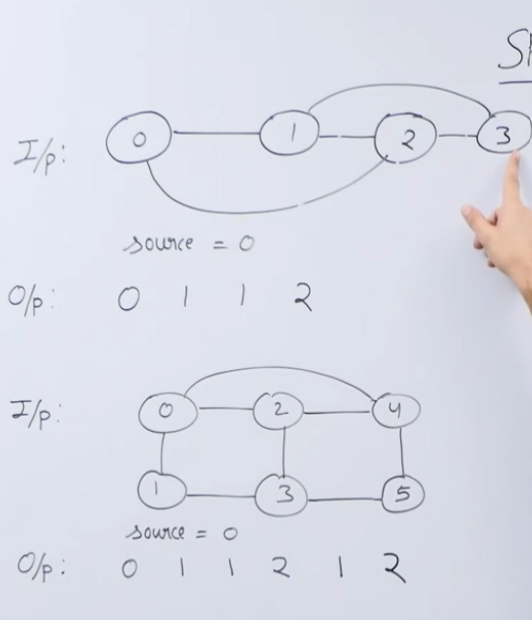 I/p:
0 1 2 3
source = 0
O/p: 0 1 1 2
I/p:
0 2 4
1 3 5
source = 0
O/p: 0 1 1 2 1 2